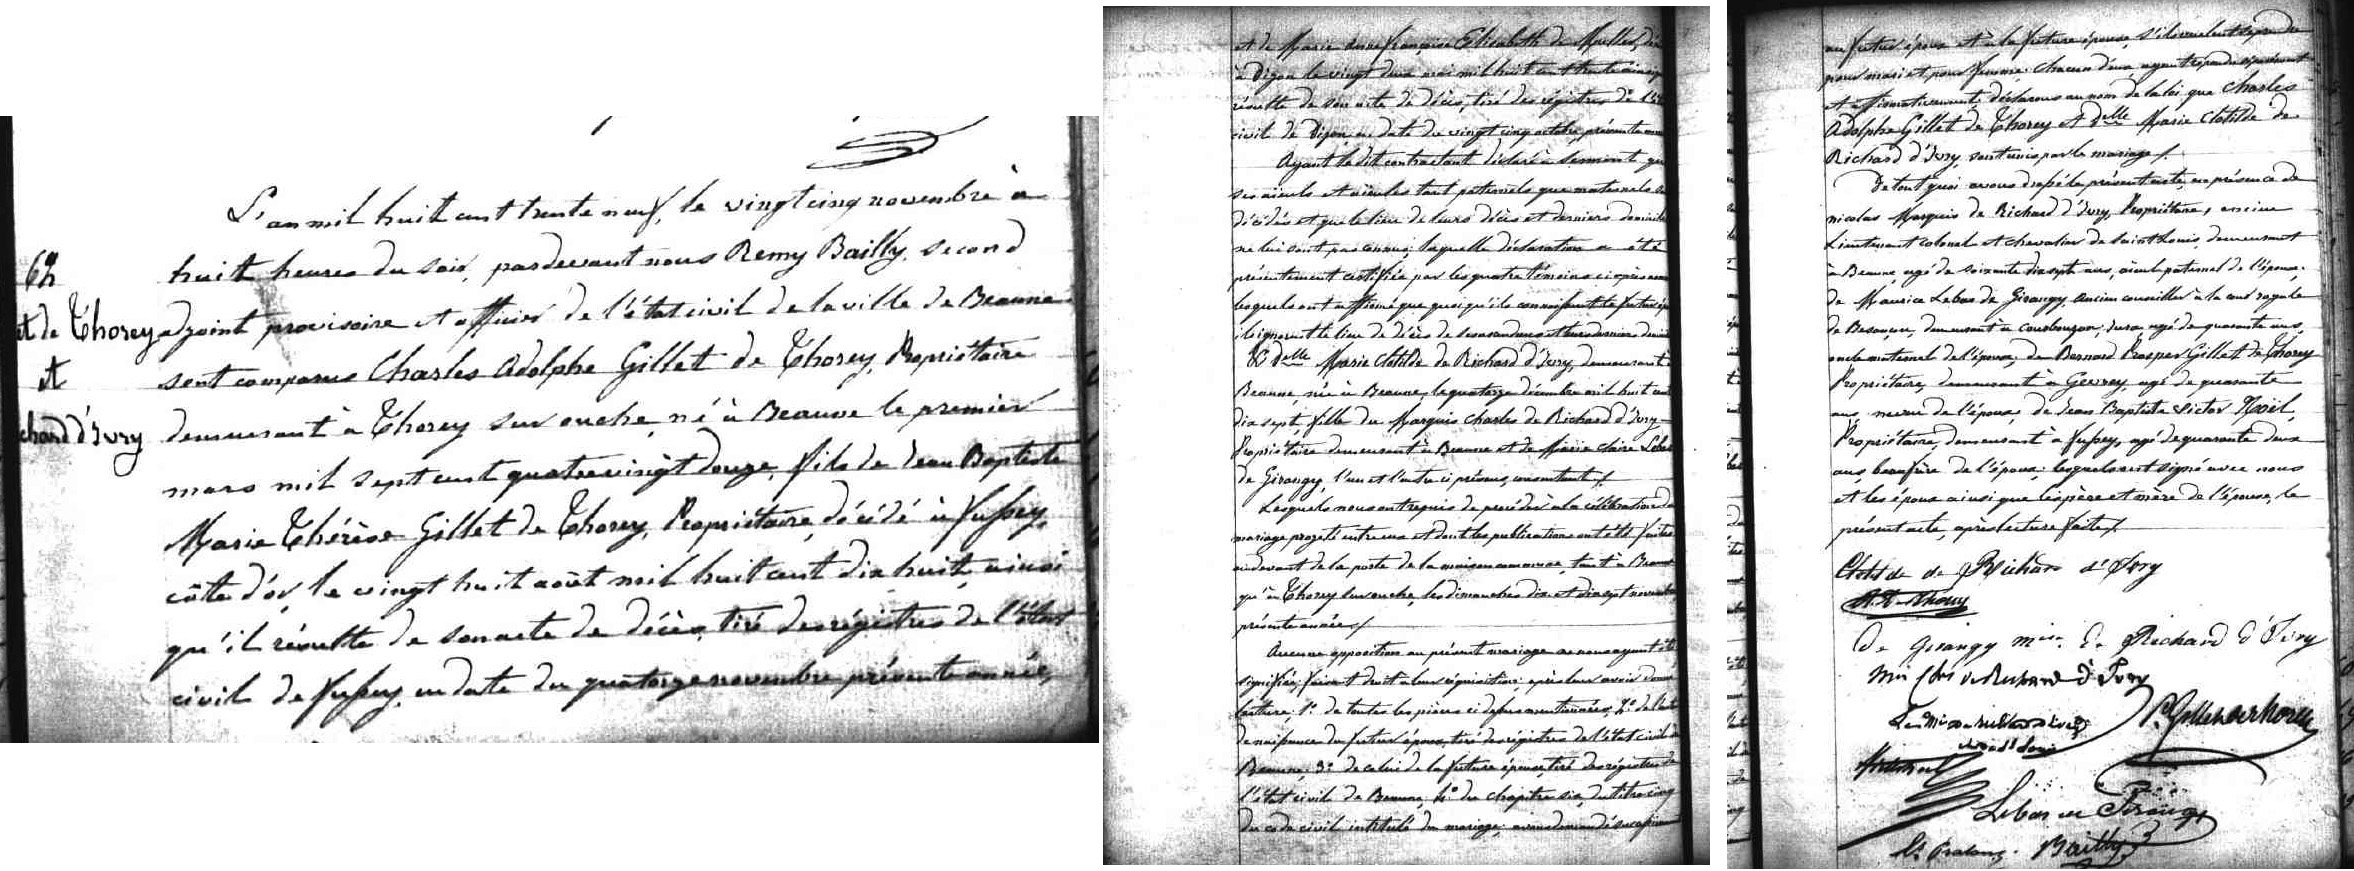 L'an mil huit cent trente neuf, le vingt cinq novembre à
62
huit heures du soir, pardevant nous Remy Bailly, second
et de Thorey
adjoint provisoire et officier de l'état civil de la ville de Beaune
et
sont comparus Charles Adolphe Gillet de Thorey, Propriétaire
chard d'Ivry
demeurant à Thorey sur ouche, né à Beaune le premier
mars mil sept cent quatrevingt douze, fils de Jean Baptiste
Marie Thérèse Gillet de Thorey, Propriétaire, décédé à fussey,
côte d'or, le vingt huit août mil huit cent dix huit, ainsi
qu'il résulte de son acte de décès, tiré des régistres de l'état
civil de fussey, en date du quatorze novembre présente année,
et de Marie anne françoise Elisabeth de Mulles,
à Dijon le vingt deux mai mil huit cent trente cinq
résulte de son acte de décès, tiré des régistres de l'état
civil de Dijon en date du vingt cinq octobre, présente année
Ayant le dit contractant déclaré à serment que
ses aïeuls et aïeules tant paternels que maternels
décédés et que le lieu de leurs décès et derniers domiciles
ne lui sont pas connus; laquelle déclaration a été
présentement certifiée par les quatre témoins ci après
lesquels ont affirmé que quoiqu'ils connaissent le futur
ils ignorent le lieu de décès de ses ascendants et leurs derniers
Et delle Marie Clotilde de Richard d'Ivry, demeurant à
Beaune, née à Beaune, le quatorze décembre mil huit cent
dix sept, fille du Marquis Charles de Richard d'Ivry
Propriétaire demeurant à Beaune et de Marie Claire Lebas
de Girangy, l'un et l'autre ci présens, consentant /.
Lesquels nous ont requis de procéder à la célébration du
mariage projeté entre eux et dont les publications ont été faites
au devant de la porte de la maison commune, tant à Beaune
qu'à Thorey sur ouche, les dimanches dix et dix sept novembre
présente année /
Aucune opposition au présent mariage ne nous ayant été
signifiée; faisant droit à leur réquisition; après leur avoir donné
lecture, 1° de toutes les pièces ci dessus mentionnées, 2° de l'acte
de naissance du futur époux, tiré des régistres de l'état civil de
Beaune; 3° de celui de la future épouse, tiré des régistres de
l'état civil de Beaune, 4° du chapitre six, du titre cinq
du code civil intitulé du mariage; avons demandé
au futur époux et à la future épouse, s'ils veulent se prendre
pour mari et pour femme; chacun d'eux ayant répondu séparément
et affirmativement; déclarons au nom de la loi que Charles
Adolphe Gillet de Thorey et delle Marie Clotilde de
Richard d'Ivry, sont unis par le mariage /.
De tout quoi avons dressé le présent acte, en présence de
nicolas Marquis de Richard d'Ivry, Propriétaire, ancien
Lieutenant colonel et chevalier de Saint Louis, demeurant
à Beaune, agé de soixante dix sept ans, aïeul paternel de l'épouse.
de Maurice Lebas de Girangy ancien conseiller à la cour royale
de Besançon, demeurant à Courbouzon, Jura, agé de quarante ans,
oncle maternel de l'épouse, de Bernard Prosper Gillet de Thorey
Propriétaire, demeurant à Gevrey, agé de quarante
ans, de l'époux, de Jean Baptiste Victor Noël,
Propriétaire, demeurant à fussey, agé de quarante deux
ans, beaufrère de l'époux; lesquels ont signé avec nous
et les époux ainsi que les père et mère de l'épouse, le
présent acte, après lecture faite /.
Clotilde de Richard d'Ivry
de Thorey
De girangy mise de Richard d'Ivry
Mis Chles de Richard d'Ivry
P. Gillet de thorey
Lebas de Girangy
Bailly